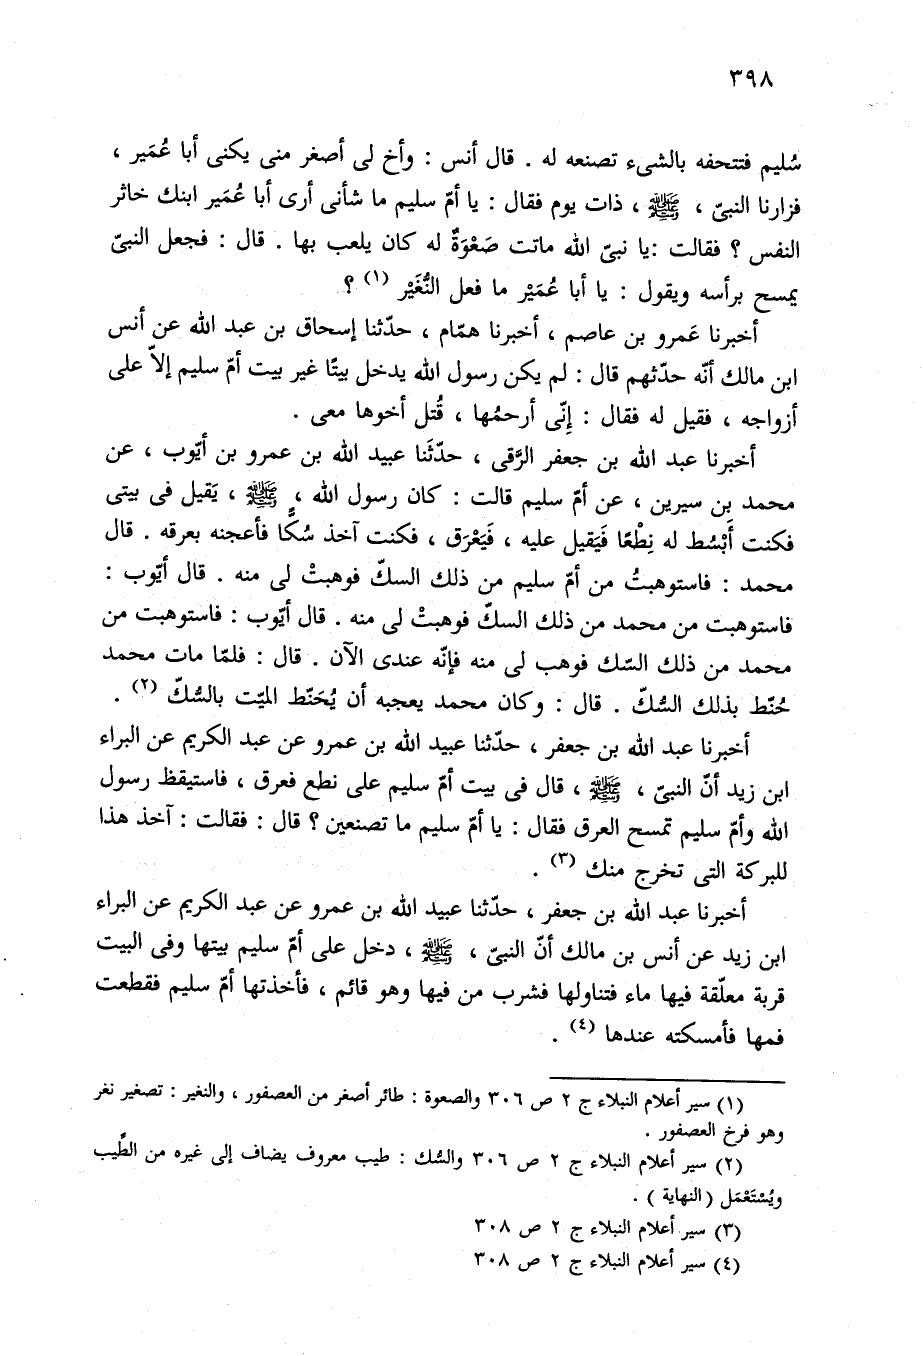 ٣٩٨
سُليم فتتحفه بالشىء تصنعه له . قال أنس : وأخ لى أصغر منى يكنى أبا عُمَير ،
فزارنا النبىّ ، ﷺ ، ذات يوم فقال : يا أمّ سليم ما شأنى أرى أبا عُمَير ابنك خاثر
النفس ؟ فقالت :يا نبىّ الله ماتت صَعْوَةٌ له كان يلعب بها . قال : فجعل النبىّ
يمسح برأسه ويقول : يا أبا عُمَيْر ما فعل النُّغَيْر (١) ؟
أخبرنا عَمرو بن عاصم ، أخبرنا همّام ، حدّثنا إسحاق بن عبد الله عن أنس
ابن مالك أنّه حدّثهم قال : لم يكن رسول الله يدخل بيتًا غير بيت أمّ سليم إلاّ على
أزواجه ، فقيل له فقال : إِنّى أرحمُها ، قُتل أخوها معى .
أخبرنا عبد الله بن جعفر الرَّقى ، حدّثَنا عبيد الله بن عمرو بن أيّوب ، عن
محمد بن سيرين ، عن أمّ سليم قالت : كان رسول الله ، ﷺ ، يَقيل فى بيتى
فكنت أَبْسُط له نِطْعًا فَيَقيل عليه ، فَيَعْرَق ، فكنت آخذ سُكًّا فأعجنه بعرقه . قال
محمد : فاستوهبتُ من أمّ سليم من ذلك السكّ فوهبتْ لى منه . قال أيّوب :
فاستوهبت من محمد من ذلك السكّ فوهبتْ لى منه . قال أيّوب : فاستوهبت من
محمد من ذلك السّك فوهب لى منه فإنّه عندى الآن . قال : فلمّا مات محمد
حُنّط بذلك السُكّ . قال : وكان محمد يعجبه أن يُحَنّط الميّت بالسُّكّ (٢) .
أخبرنا عبد الله بن جعفر ، حدّثنا عبيد الله بن عمرو عن عبد الكريم عن البراء
ابن زيد أنّ النبىّ ، ﷺ ، قال فى بيت أمّ سليم على نطع فعرق ، فاستيقظ رسول
الله وأمّ سليم تمسح العرق فقال : يا أمّ سليم ما تصنعين ؟ قال : فقالت : آخذ هذا
للبركة التى تخرج منك (٣) .
أخبرنا عبد الله بن جعفر ، حدّثنا عبيد الله بن عمرو عن عبد الكريم عن البراء
ابن زيد عن أنس بن مالك أنّ النبىّ ، ﷺ ، دخل على أمّ سليم بيتها وفى البيت
قربة معلّقة فيها ماء فتناولها فشرب من فيها وهو قائم ، فأخذتها أمّ سليم فقطعت
فمها فأمسكته عندها (٤) .
(١) سير أعلام النبلاء ج ٢ ص ٣٠٦ والصعوة : طائر أصغر من العصفور ، والنغير : تصغير نغر
وهو فرخ العصفور .
(٢) سير أعلام النبلاء ج ٢ ص ٣٠٦ والسُّك : طيب معروف يضاف إلى غيره من الطِّيب
ويُسْتَعْمَل ( النهاية ) .
(٣) سير أعلام النبلاء ج ٢ ص ٣٠٨
(٤) سير أعلام النبلاء ج ٢ ص ٣٠٨